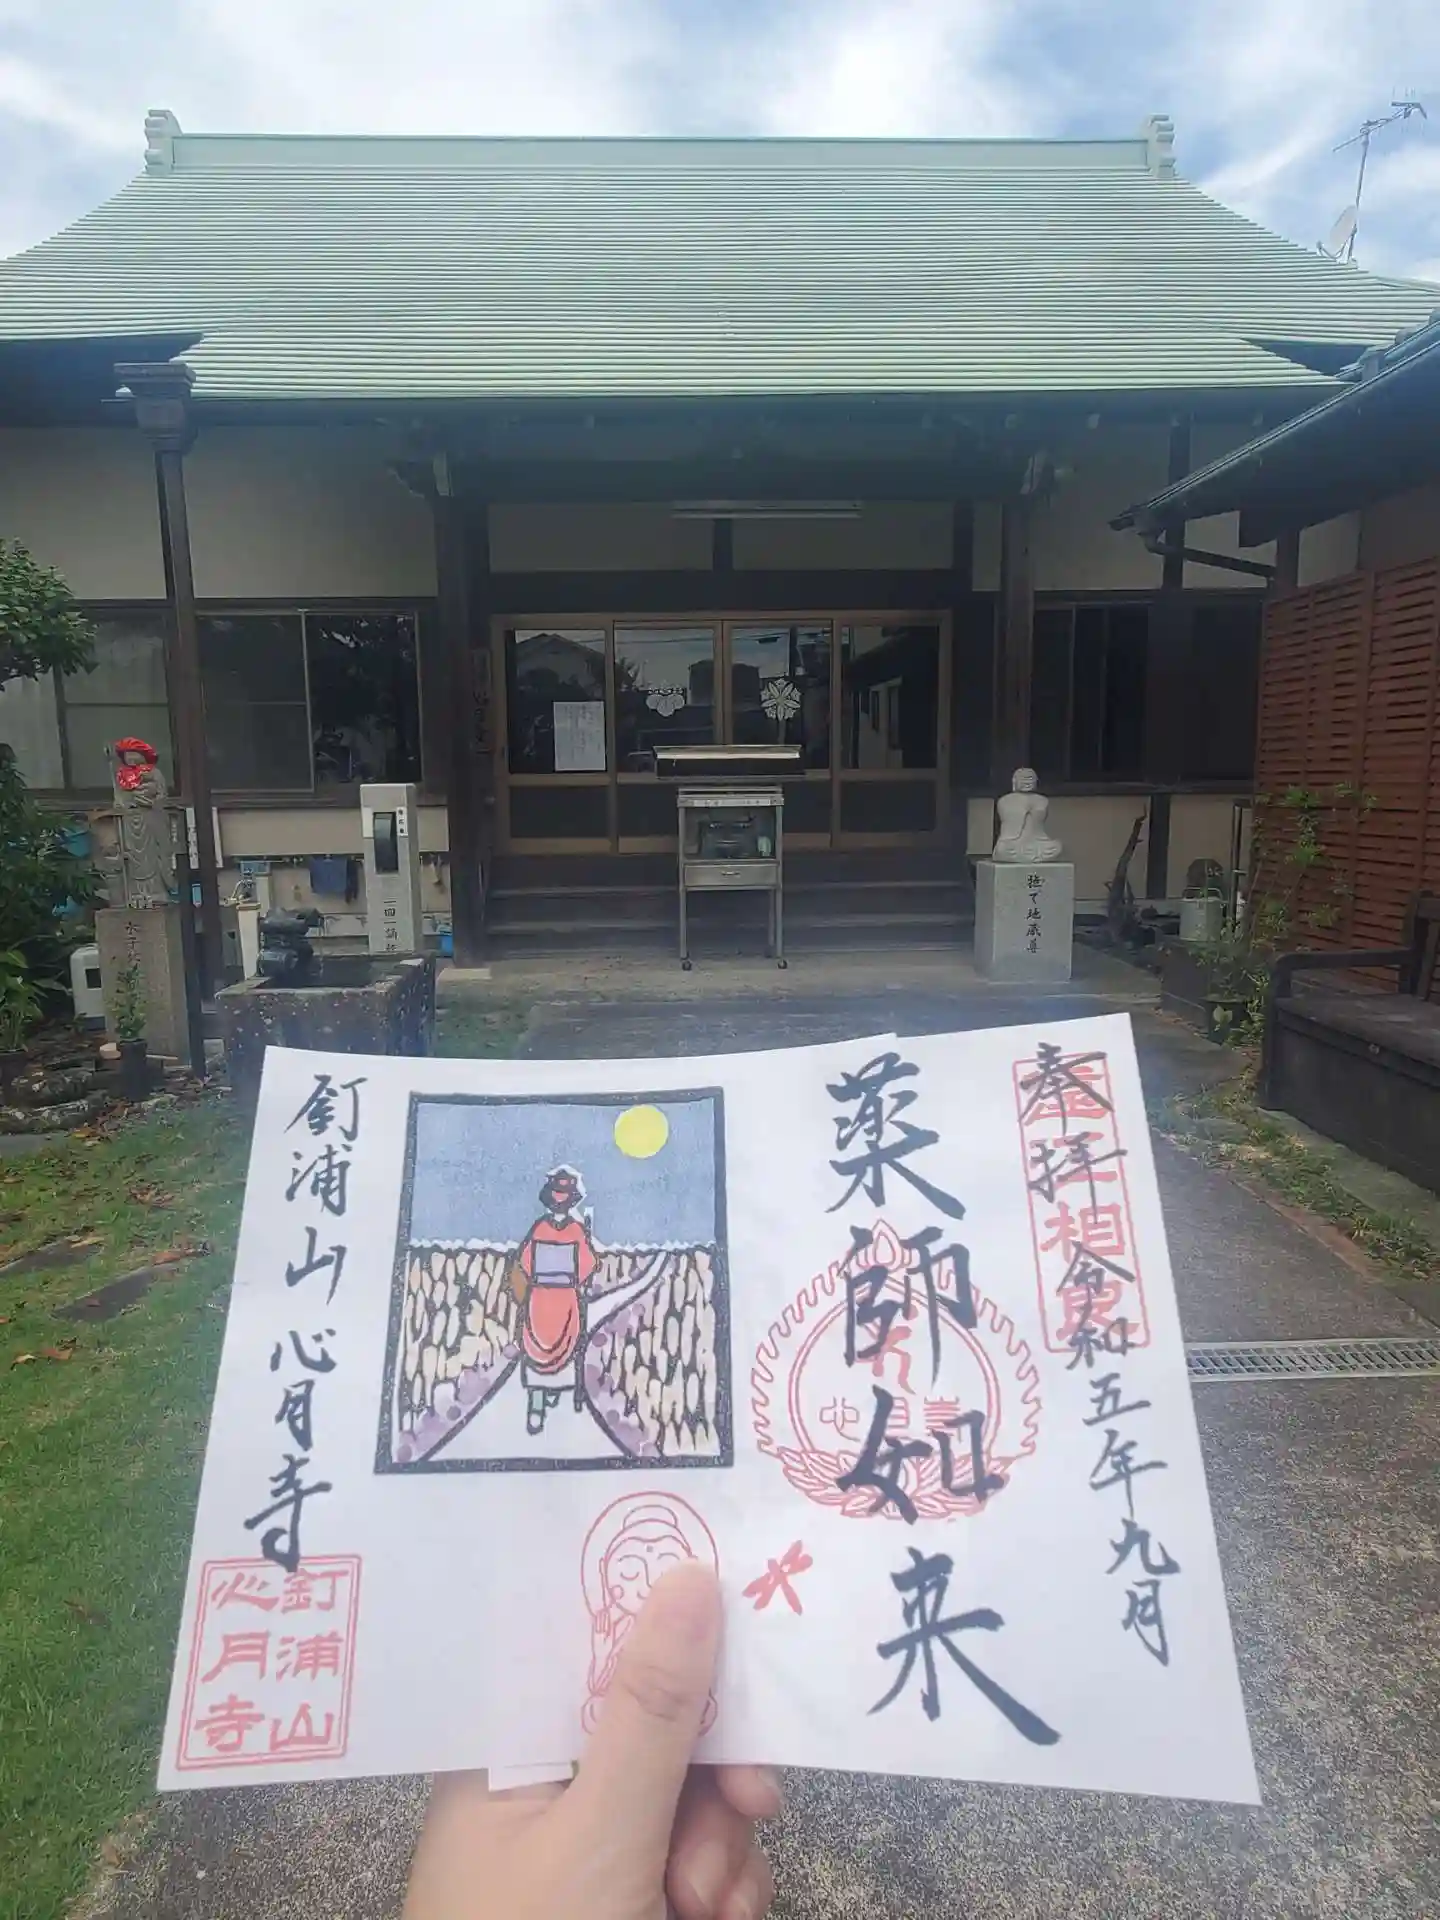 奉拝
令和五年九月
薬師如来
釘浦山心月寺
釘浦山
心月寺
撫で地蔵尊
一回一誦